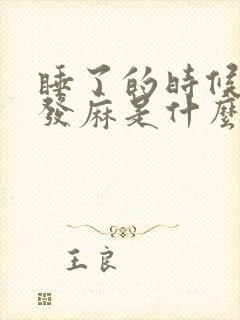 睡了的時候
發麻是什麼
王良